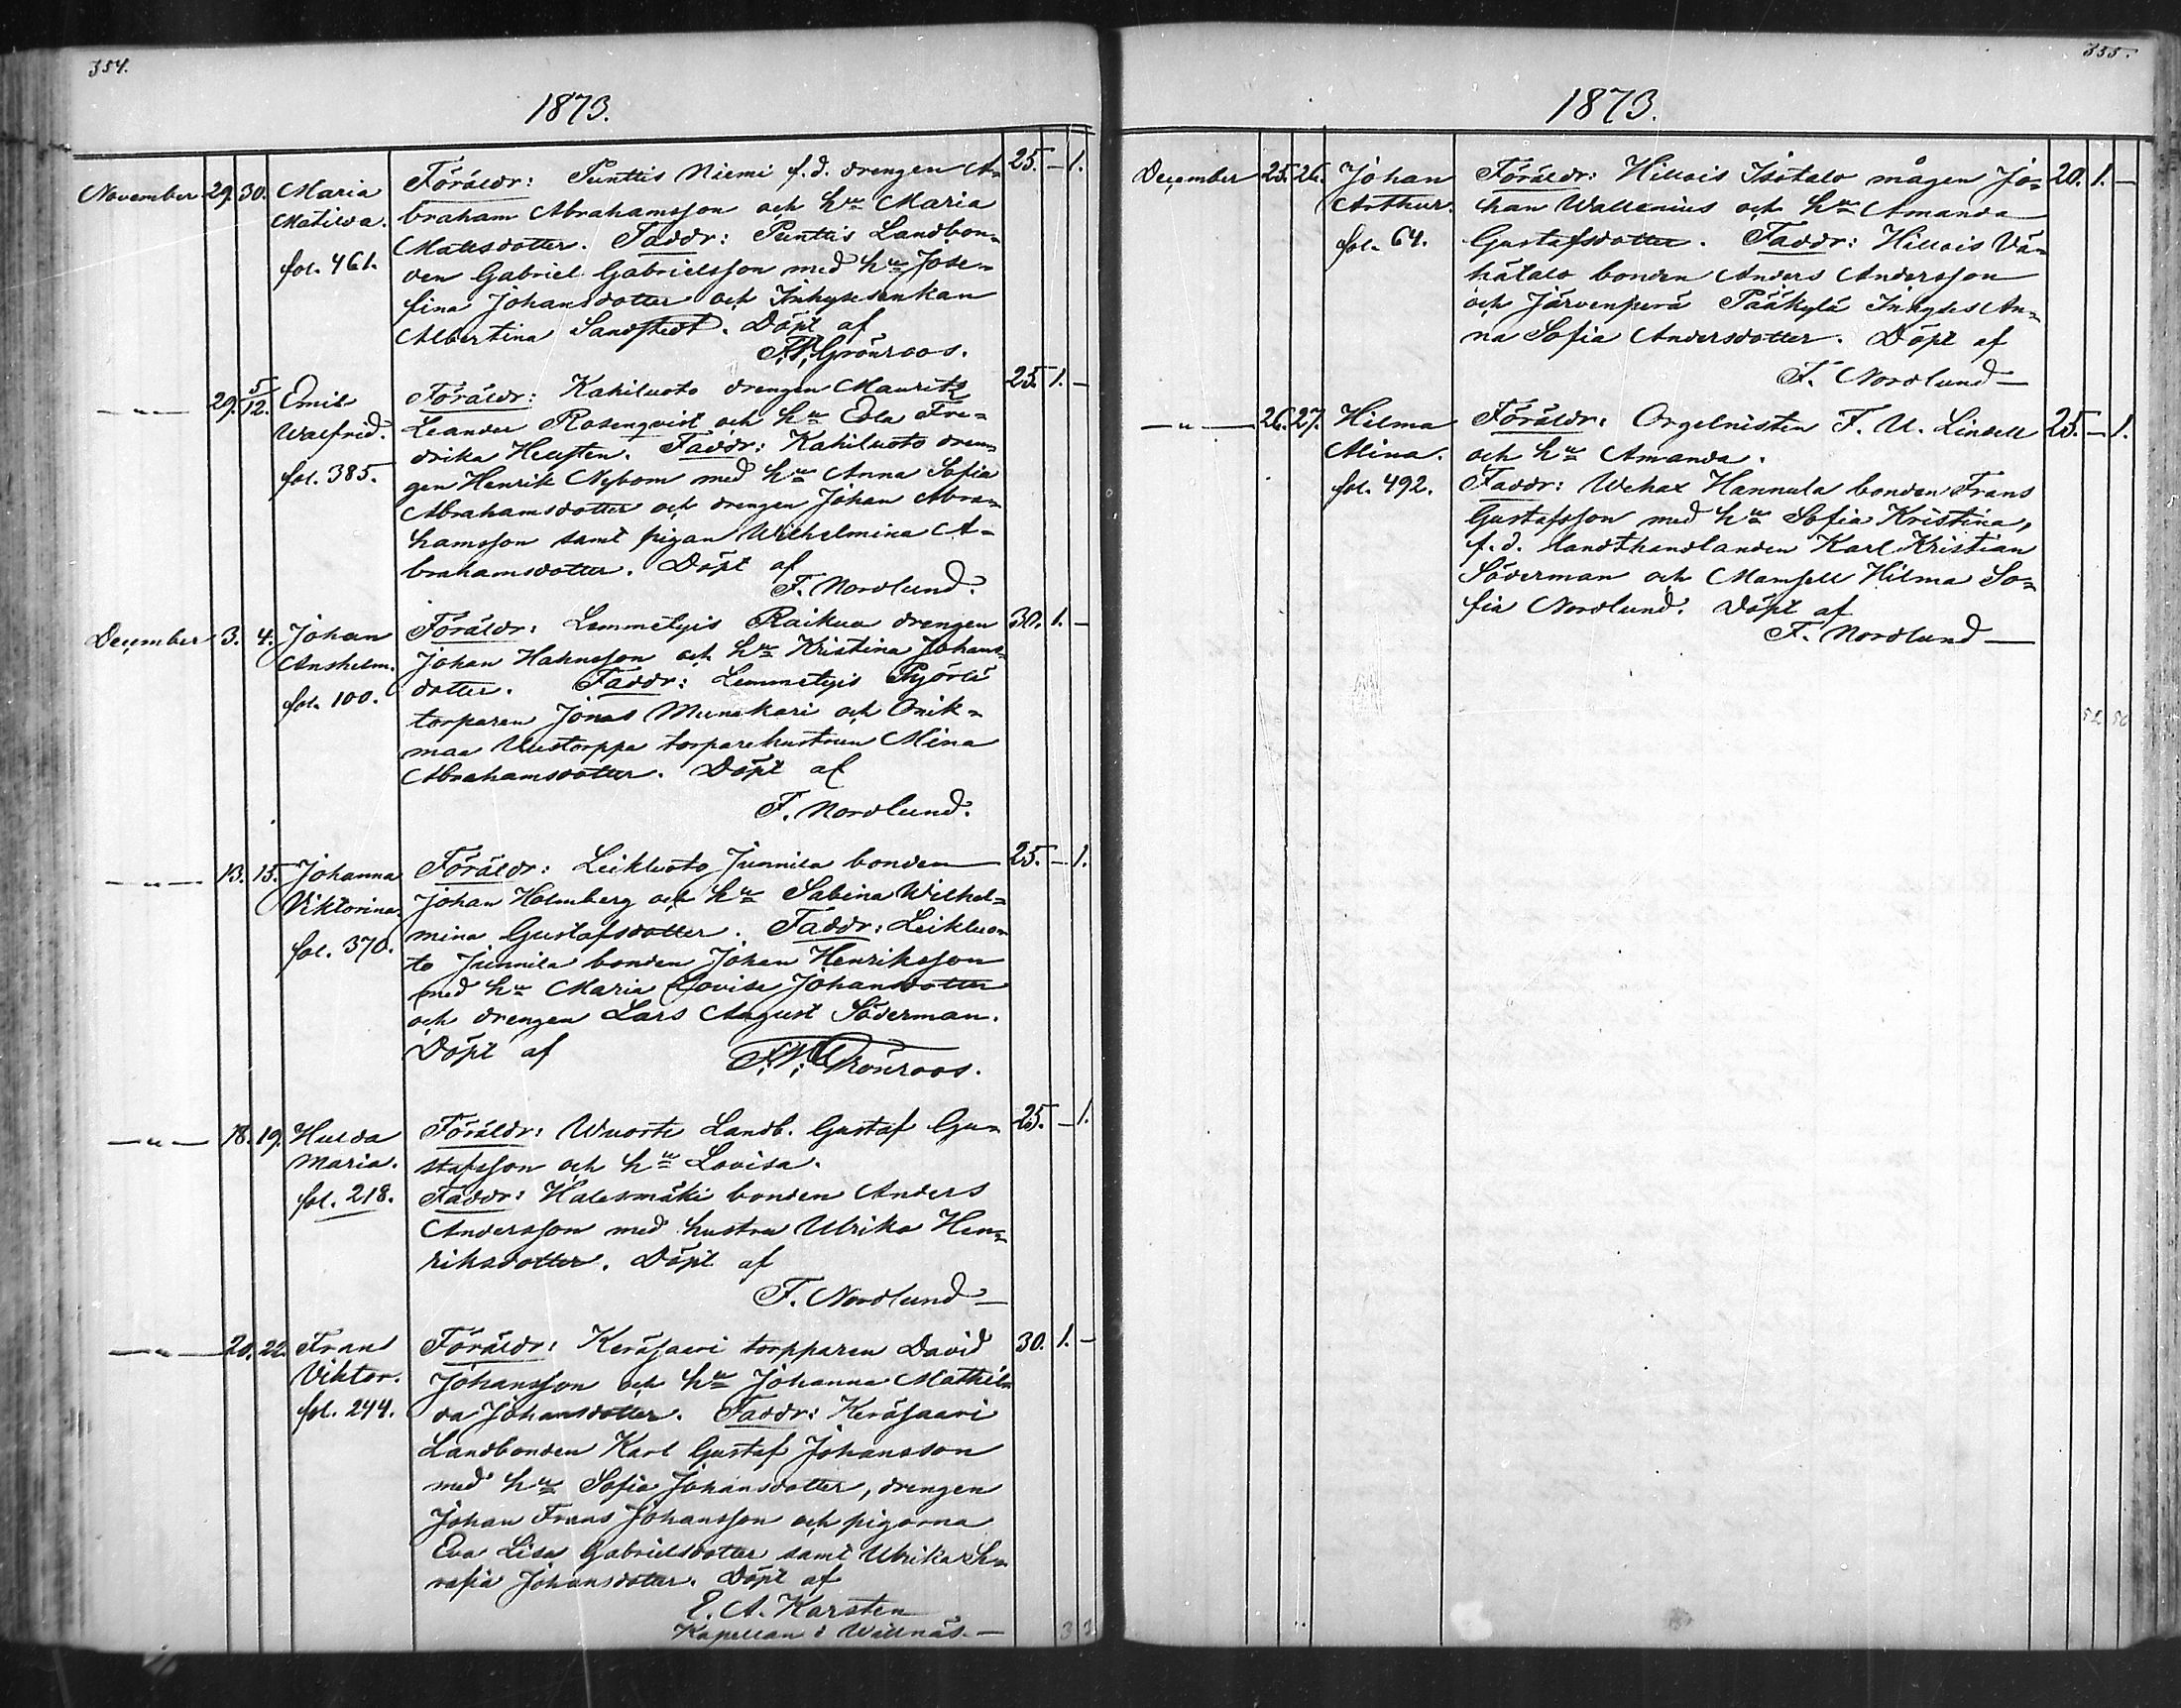 354.
1873.
November 29. 30. Maria Föräldr: Punttis Niemi f.d. drengen A= 25. – 1.
Matilda. braham Abrahamsson och hu Maria
Mattsdotter. Faddr: Punttis Landbon=
fol. 461. den Gabriel Gabrielsson med hu Jose=
fina Johansdotter och Inhysesenkan
Albertina Sandstedt. Döpt af
F.W. Grönroos.
—„— 29. 5/12. Emil Föräldr: Kahiluoto drengen Maurits 25. 1. –
Walfrid. Leander Rosenqvist och hu Eda Fre=
drika Hellsten. Faddr: Kahiluoto dren=
fol. 385. gen Henrik Nybom med hu Anna Sofia
Abrahamsdotter och drengen Johan Abra=
hamsson samt pigan Wilhelmina A=
brahamsdotter. Döpt af
F. Nordlund.
December 3. 4. Johan Föräldr: Lemmetyis Raikua drengen 30. 1. –
Anshelm. Johan Hahnsson och hu Kristina Johans=
fol. 100. dotter. Faddr: Lemmetyis Pyörli
torparen Jonas Munakari och Onik=
maa Uustorppa torparehustrun Mina
Abrahamsdotter. Döpt af
F. Nordlund.
—„— 13. 15. Johanna Föräldr: Leikluoto Junnila bonden 25. – 1.
Viktorina. Johan Holmberg och hu Sabina Wilhel=
mina Gustafsdotter. Faddr: Leikluo=
fol. 370. to Junnila bonden Johan Henriksson
med hu Maria Lovisa Johansdotter
och drengen Lars August Söderman.
Döpt af F.W. Grönroos.
—„— 18. 19. Hulda Föräldr: Wuorte Landb. Gustaf Gu= 25. – 1.
Maria. stafsson och hu Lovisa.
fol. 218. Faddr: Halasmäki bonden Anders
Andersson med hustru Ulrika Hen=
riksdotter. Döpt af
F. Nordlund
—„— 20. 22. Frans Föräldr: Keräsaari torpparen David 30. 1. –
Viktor. Johansson och hu Johanna Mathil=
fol. 244. da Johansdotter. Faddr: Keräsaari
Landbonden Karl Gustaf Johansson
med hu Sofia Johansdotter, drengen
Johan Frans Johansson och pigorna
Eva Lisa Gabrielsdotter samt Ulrika Se=
rafia Johansdotter. Döpt af
E. A. Karsten
Kapellan i Willnäs.
355.
1873.
December 25. 26. Johan Föräldr: Hillois Isotalo mågen Jo= 20. 1. –
Arthur. han Wallenius och hu Amanda
fol. 64. Gustafsdotter. Faddr: Hillois Vä=
hätalo bonden Anders Andersson
och Järvenperä Pääkylä Inhyses An=
na Sofia Andersdotter. Döpt af
F. Nordlund
—„— 26. 27. Hilma Föräldr: Orgelnisten F. U. Lindell 25. – 1.
Alina. och hu Amanda.
fol. 492. Faddr: Wehax Hannula bonden Frans
Gustafsson med hu Sofia Kristina,
f.d. landthandlanden Karl Kristian
Söderman och Mamsell Hilma So=
fia Nordlund. Döpt af
F. Nordlund